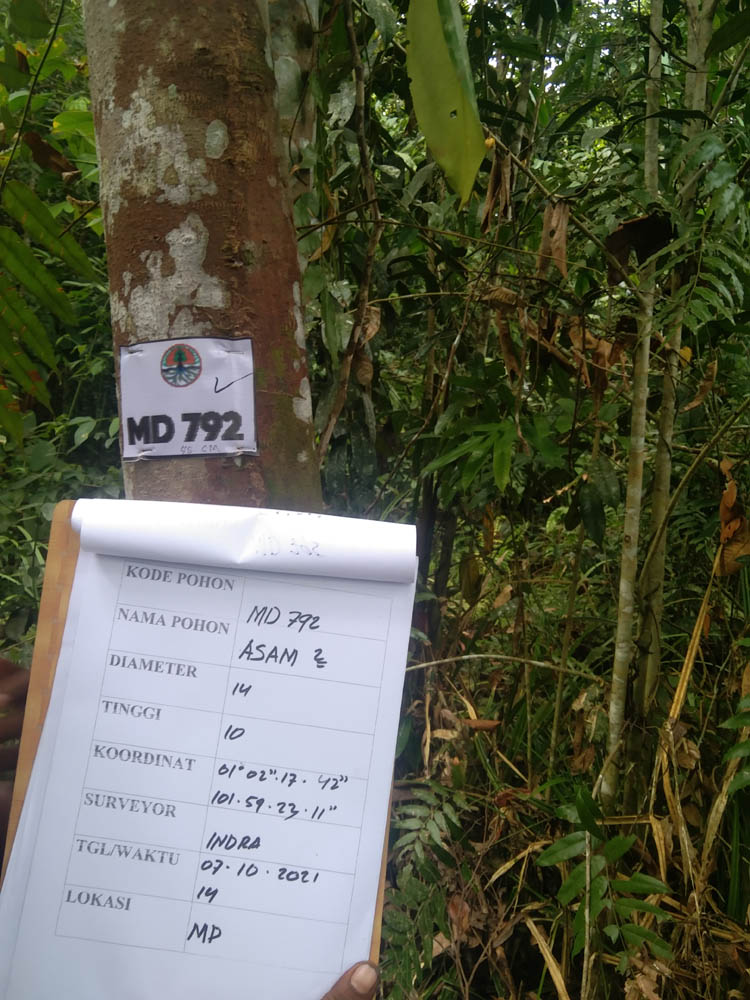 MD 792
KODE POHON
MD 792
NAMA POHON
ASAM 2
DIAMETER
14
TINGGI
10
KOORDINAT
01° 02".17. 42"
101.59.23.11"
SURVEYOR
INDRA
TGL/WAKTU
07.10.2021
14
LOKASI
MD